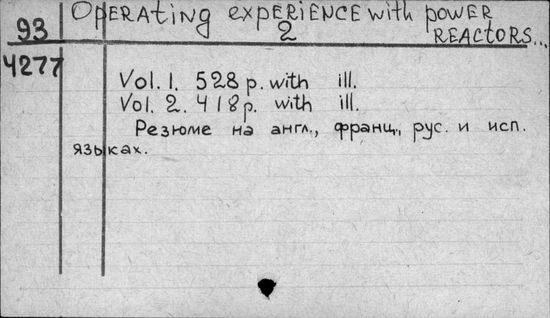 93 OPERATING EXPERIENCE with POWER
2 REACTORS...
4277
Vol. 1. 528 p. with ill.
Vol. 2. 418 p. with ill.
Резюме на англ., франц., рус. и исп.
языках.